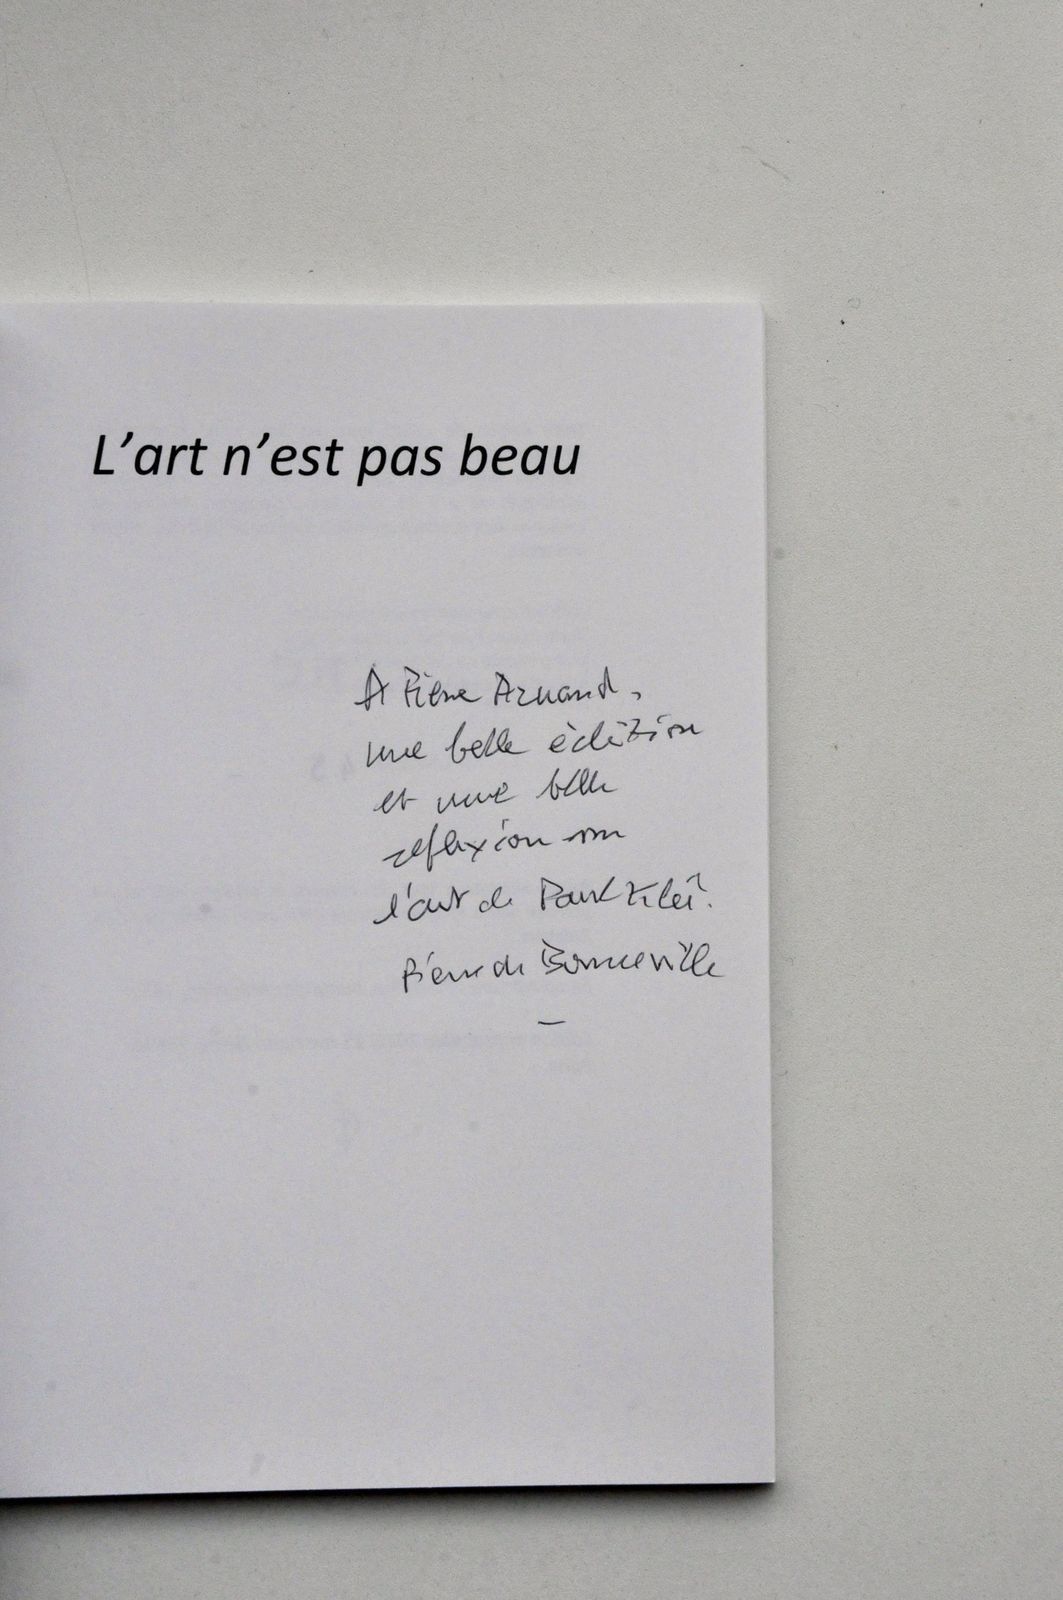 L'art n'est pas beau
A Pierre Arnaud,
une belle édition
et une belle
reflexion sur
l'art de Paul
Pierre de Bonneville